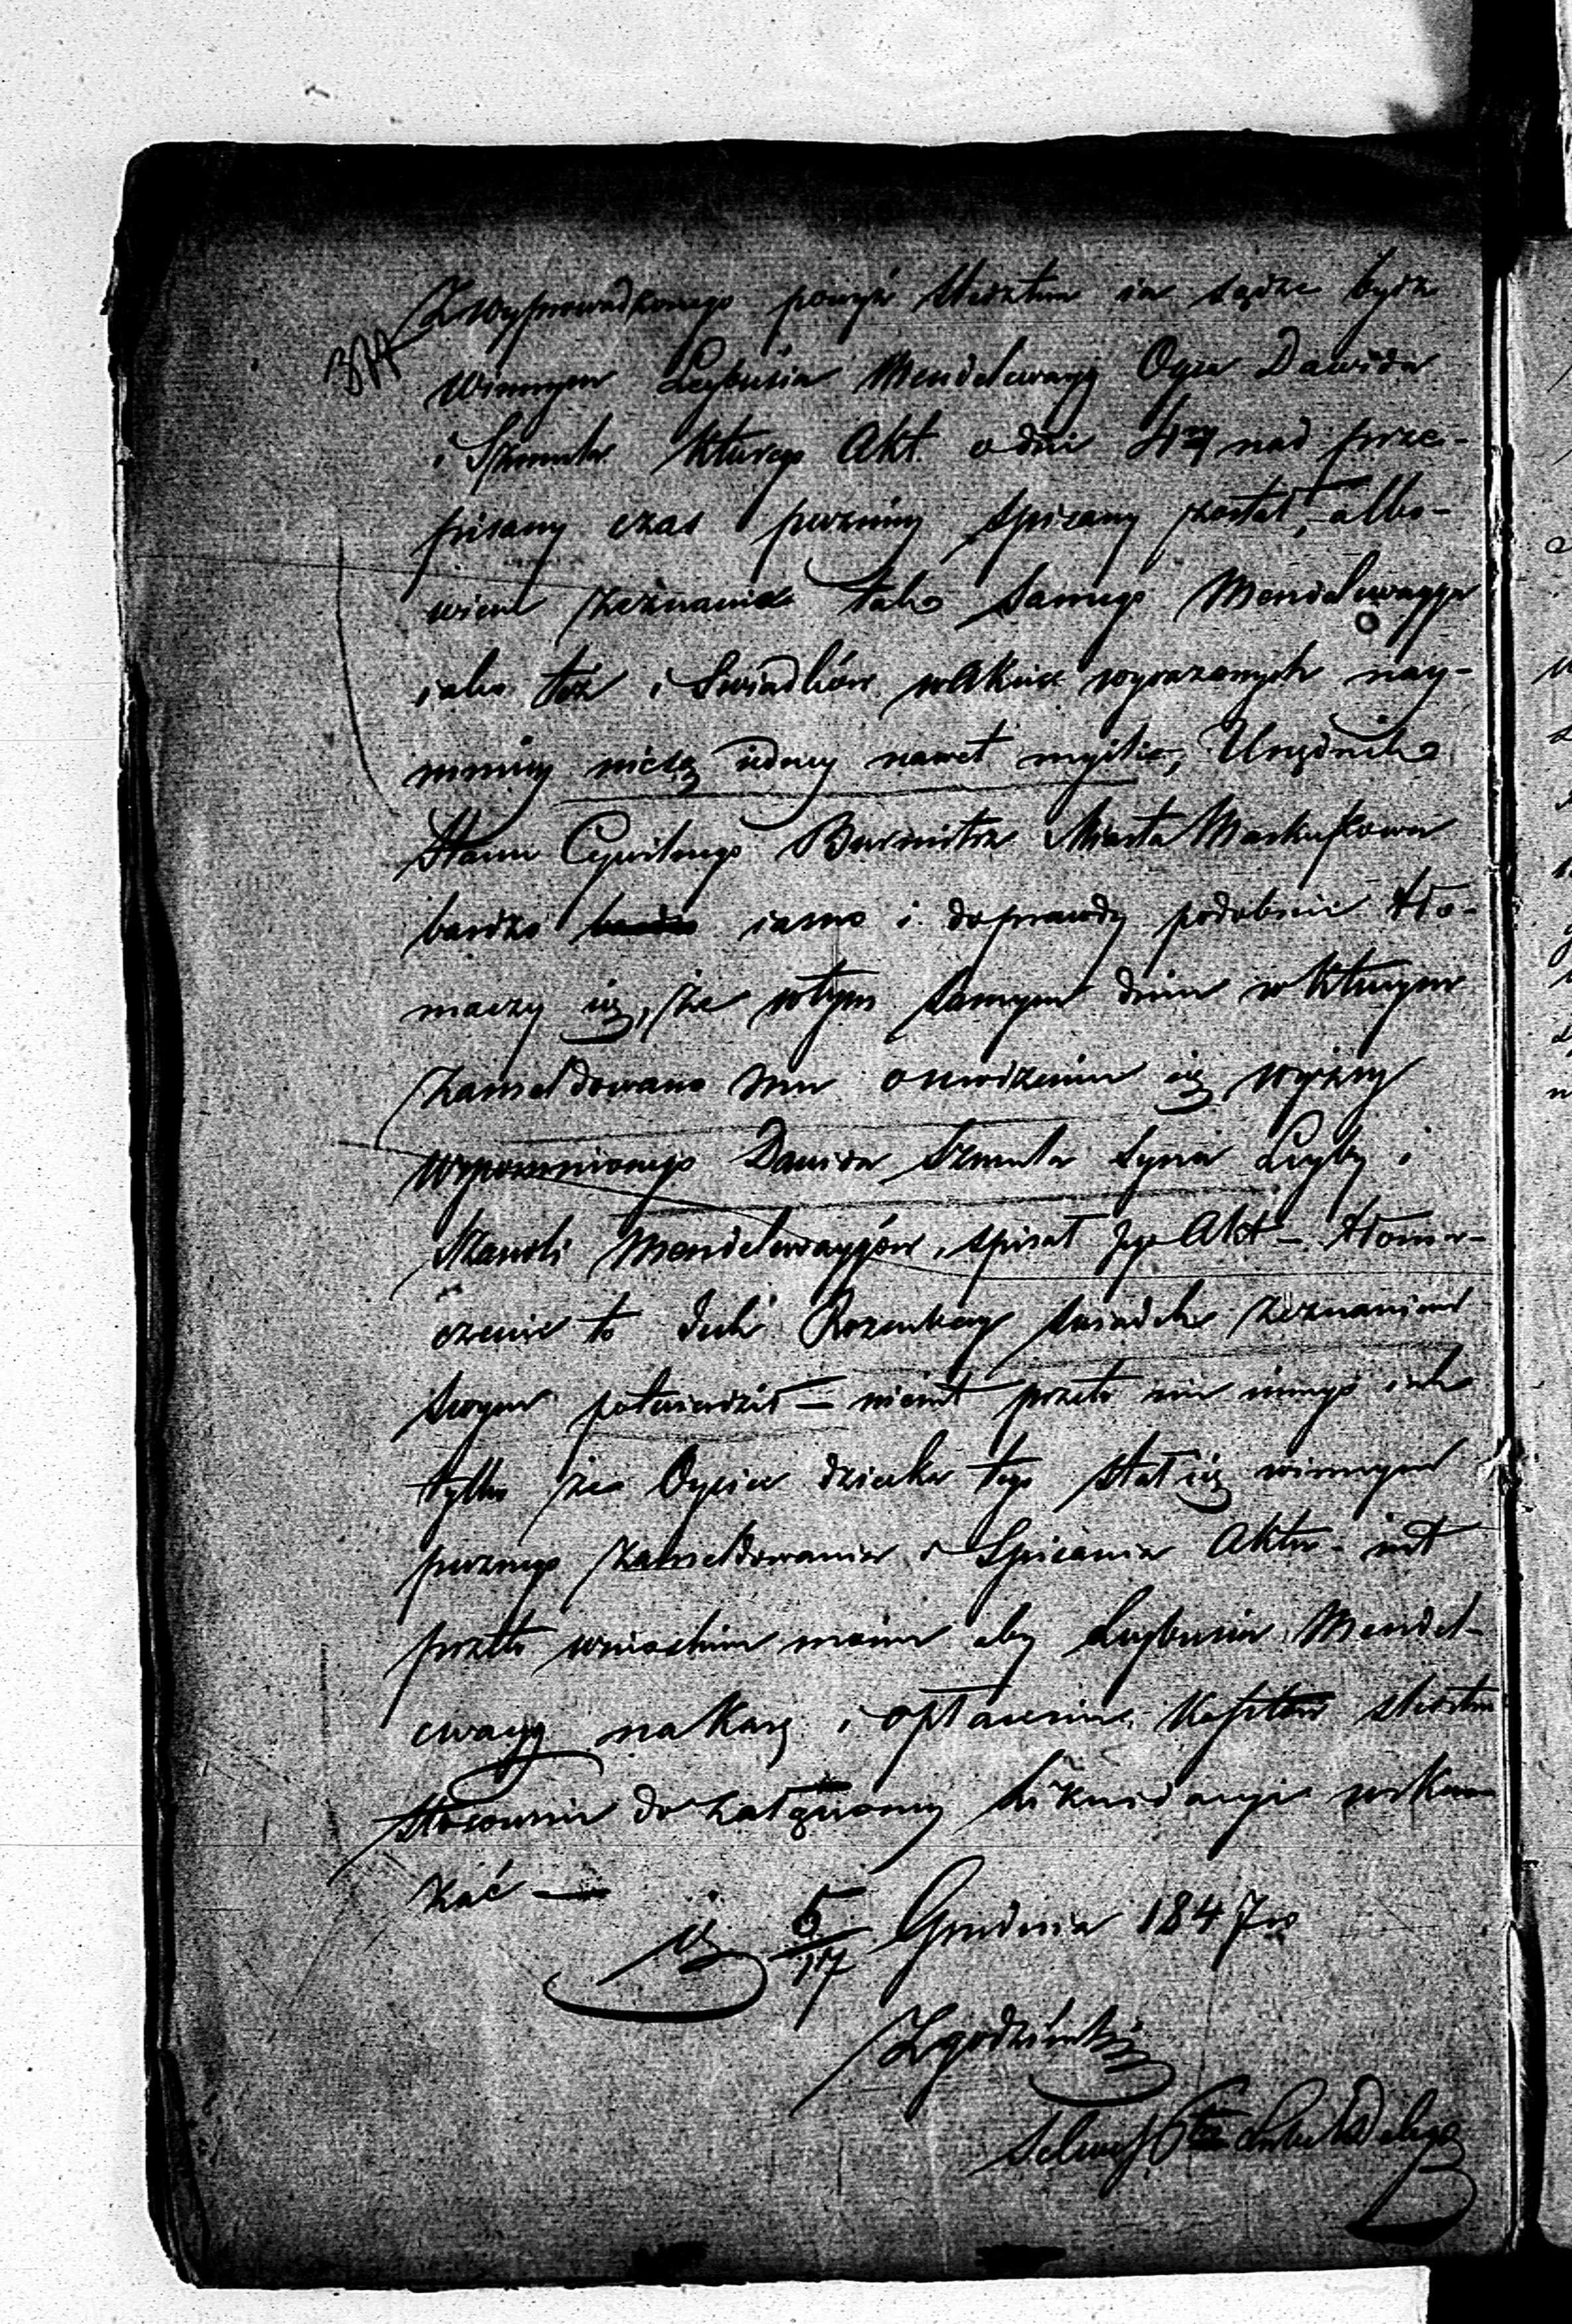 Zwyprowadzonego powyż śledztwa ia sądzę bydz
winnym Leybusia Mendelewayg Oyca Dawida
i Szmula którego Akt o dni nad prze-
pisany czas puzniey spisany został, albo-
wiem zeznania tak samego Mendelwayga
iako też i Swiadków wAkcie wyrażonych nay-
mniey niesą iedney nawet myśli, Urzędnik
Stanu Cywilnego Burmistrz Miasta Markuszowa
bardzo iasno i doprawdy podobnie tło-
maczy się, że wtym samym dniu w którym
zameldowano mu o urodzeniu się wyżey
wspomnionego Dawida Szmula syna Leyby i
Mendelwaygów, spisał Jego Akt – tłoma-
czenie to Rozenberg swiadek zeznaniem
swym potwierdził – niemt przeto nic innego iak
tylko że Oyciec dziecka tego stał się winnym
puznego zameldowania i Spisania Aktu – iest
przeto wnioskiem moim aby Leybusia Mendel-
ewayg na karę i opłacenie kosztów śledztwa
stosownie do załączoney Likwidacyi wska-
zać —
5/17 Grudnia 1847 ro
Zgodziński